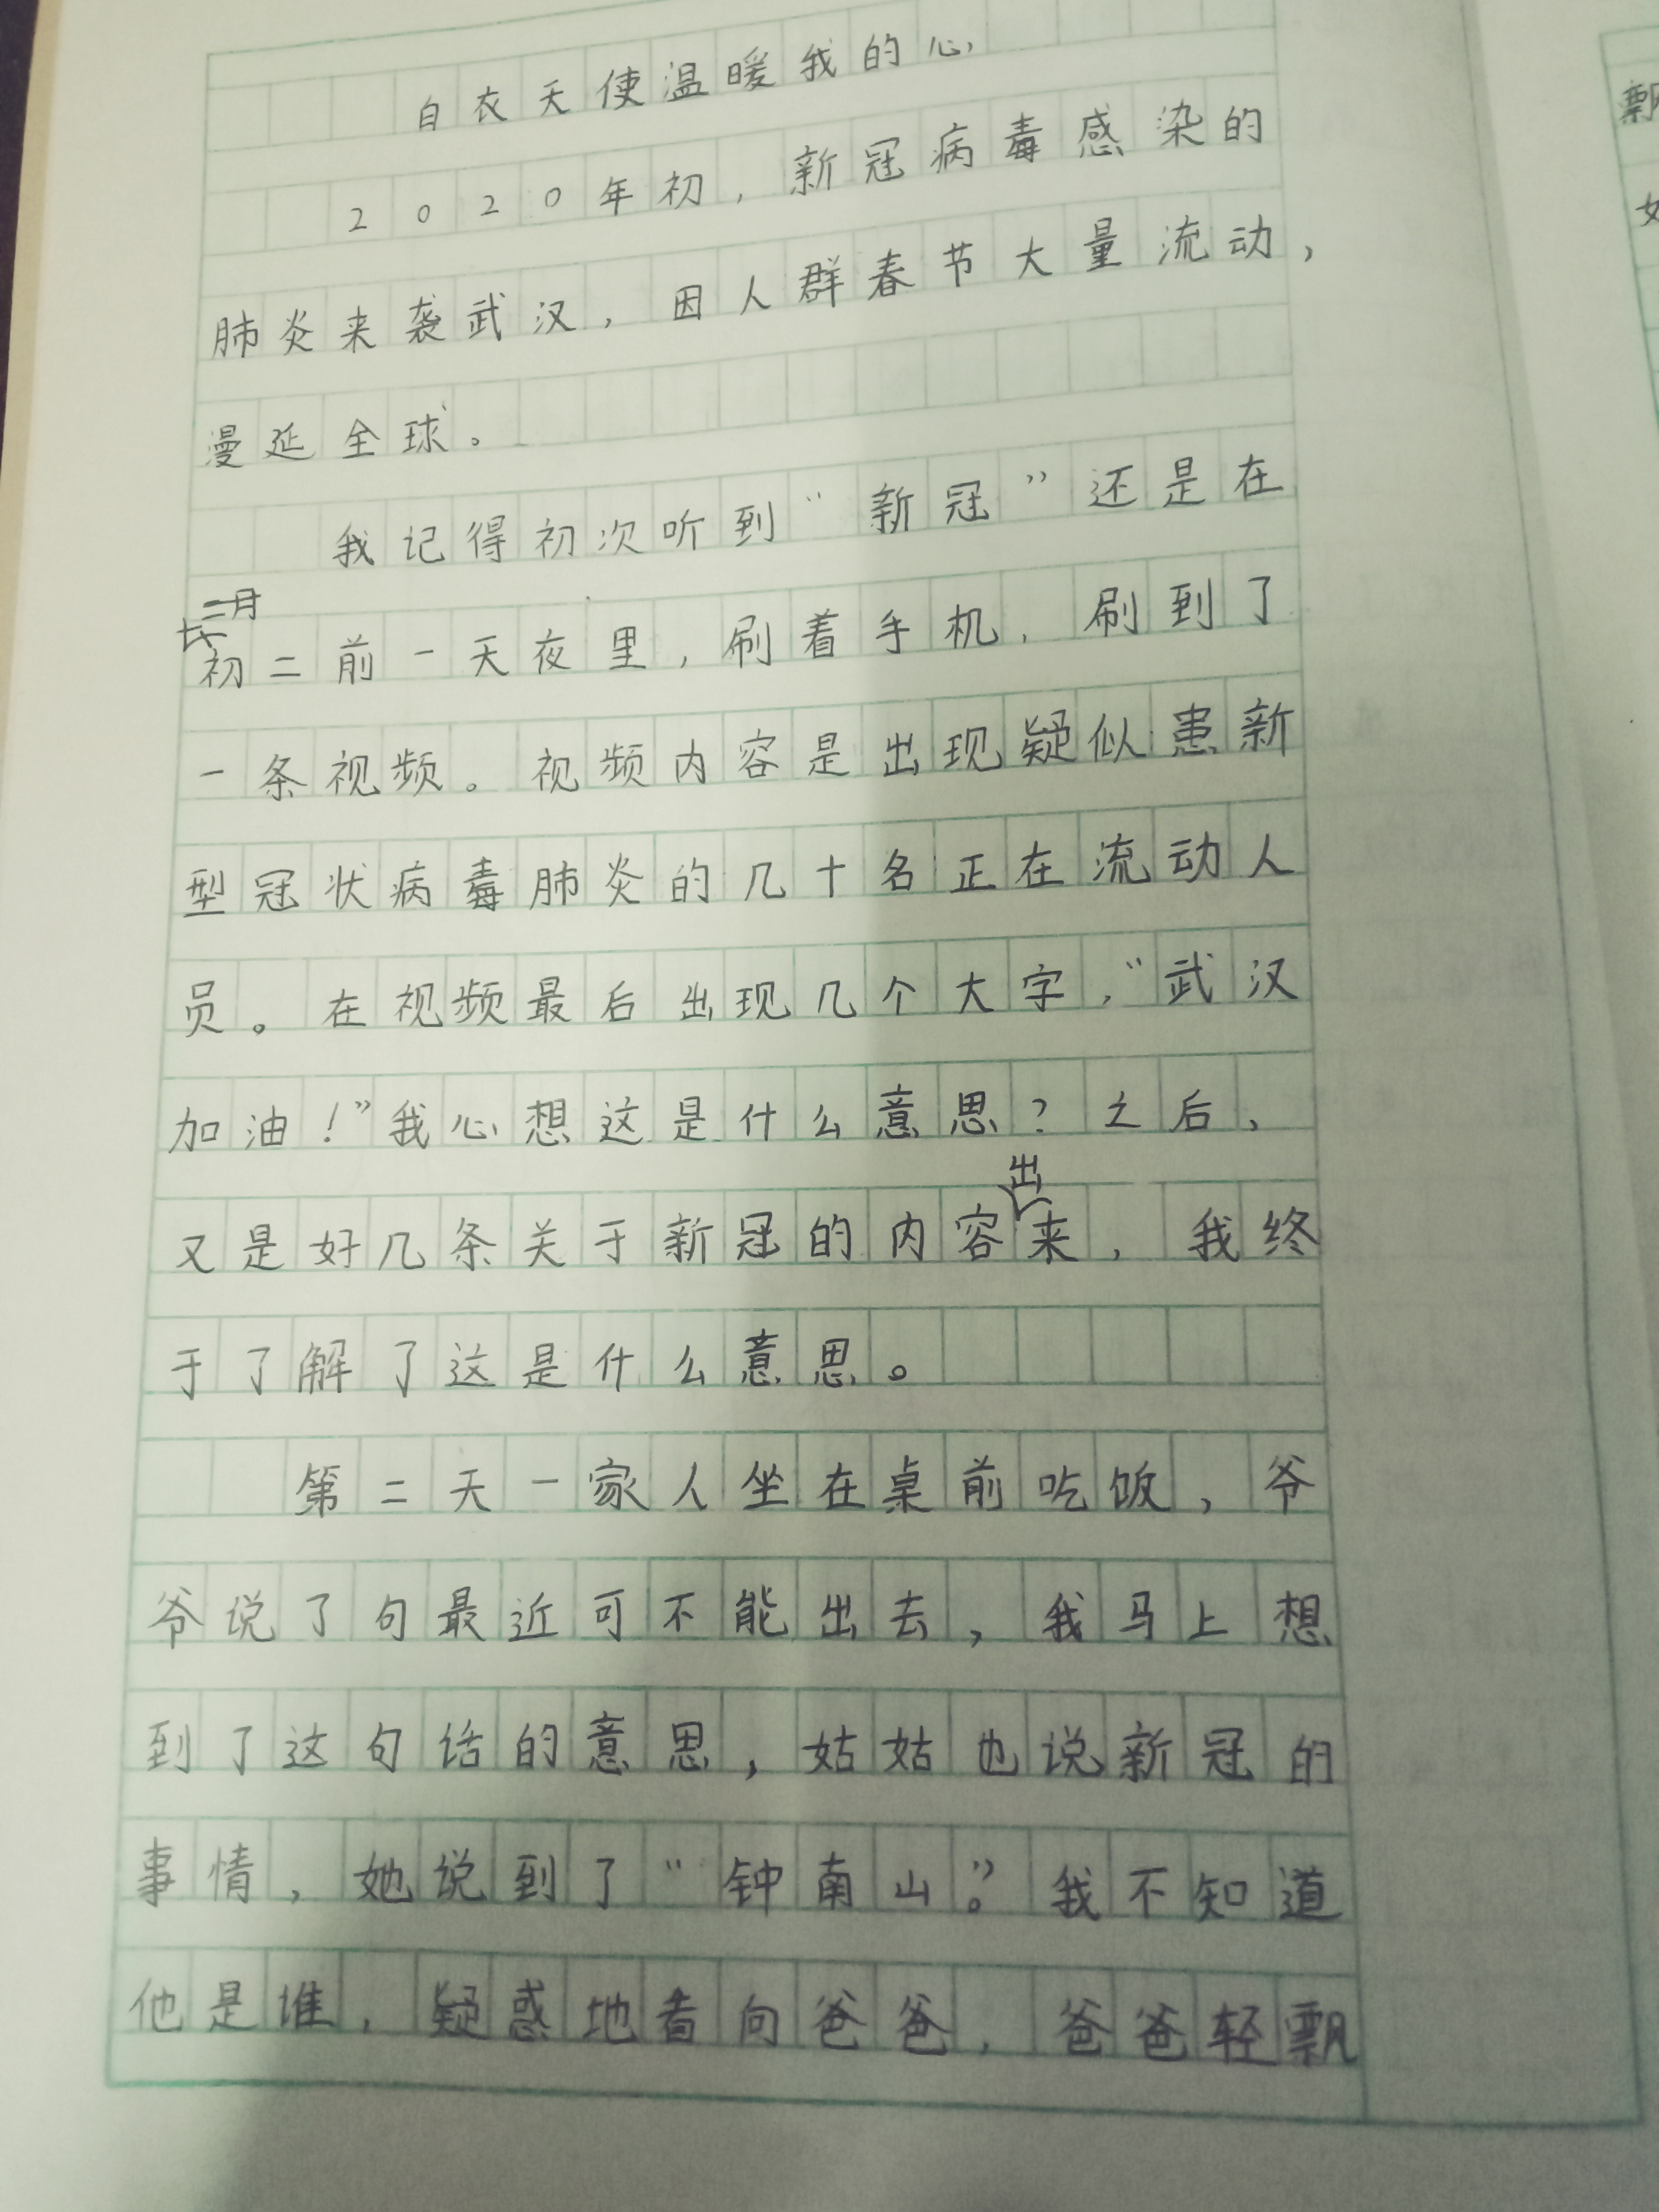 白衣天使温暖我的心
2020年初，新冠病毒感染的
肺炎来袭武汉，因人群春节大量流动，
漫延全球。
我记得初次听到“新冠”还是在
二月
初二前一天夜里，刷着手机，刷到了
一条视频。视频内容是出现疑似患新
型冠状病毒肺炎的几十名正在流动人
员。在视频最后出现几个大字，“武汉
加油！”我心想这是什么意思？之后，
出
又是好几条关于新冠的内容来，我终
于了解了这是什么意思。
第二天一家人坐在桌前吃饭，爷
爷说了句最近可不能出去，我马上想
到了这句话的意思，姑姑也说新冠的
事情，她说到了“钟南山”。我不知道
他是谁，疑惑地看向爸爸，爸爸轻飘
飘